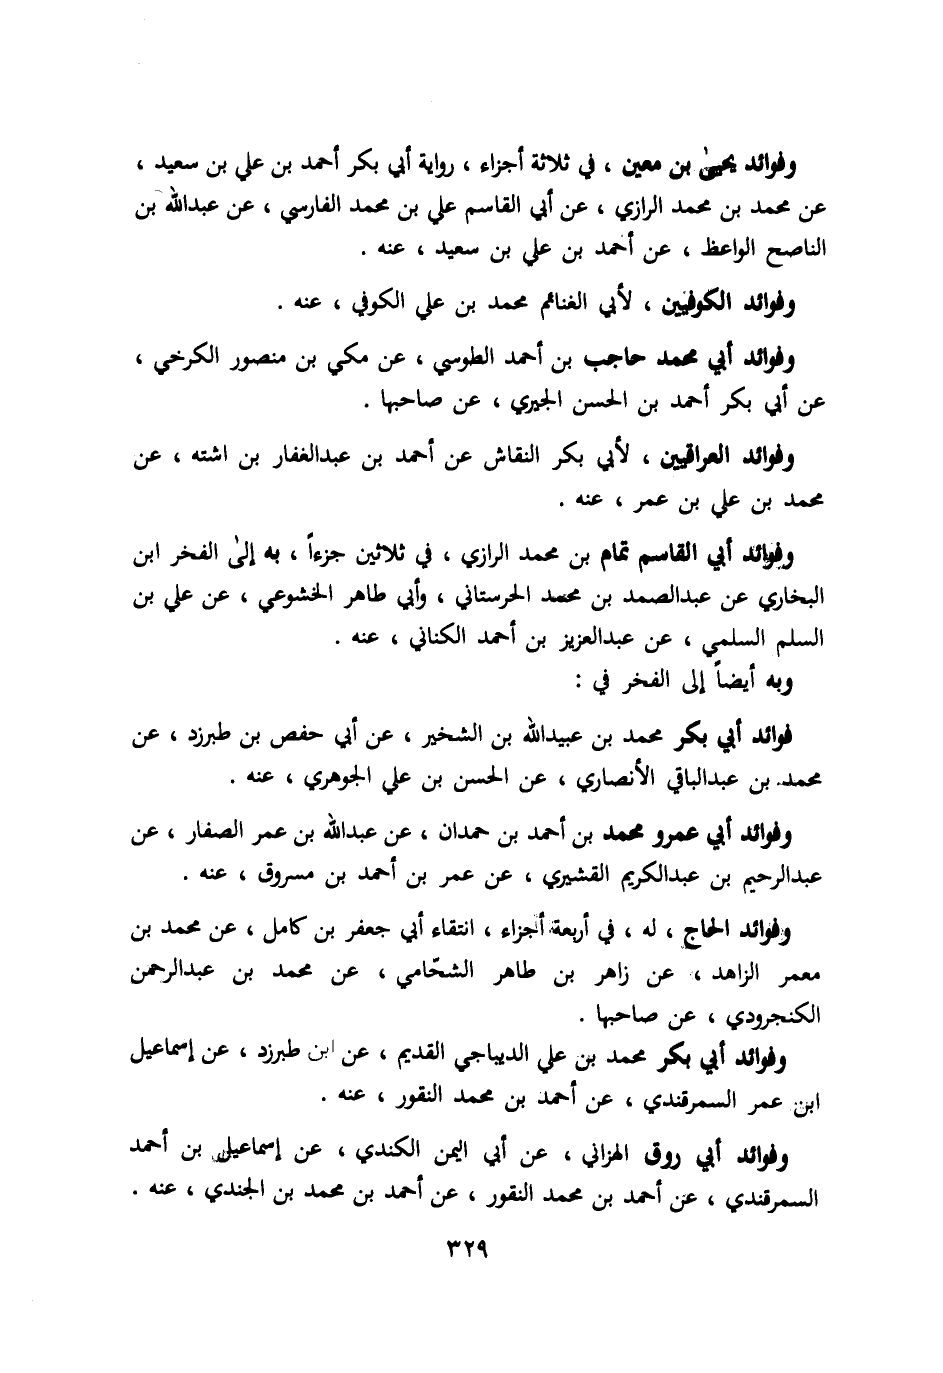 وفوائد يحيىٰ بن معين ، في ثلاثة أجزاء ، رواية أبي بكر أحمد بن علي بن سعيد ،
عن محمد بن محمد الرازي ، عن أبي القاسم علي بن محمد الفارسي ، عن عبدالله بن
الناصح الواعظ ، عن أحمد بن علي بن سعيد ، عنه .
وفوائد الكوفيين ، لأبي الغنائم محمد بن علي الكوفي ، عنه .
وفوائد أبي محمد حاجب بن أحمد الطوسي ، عن مكي بن منصور الكرخي ،
عن أبي بكر أحمد بن الحسن الجيري ، عن صاحبها .
وفوائد العراقيين ، لأبي بكر النقاش عن أحمد بن عبدالغفار بن اشته ، عن
محمد بن علي بن عمر ، عنه .
وفوائد أبي القاسم تمام بن محمد الرازي ، في ثلاثين جزءاً ، به إلىٰ الفخر ابن
البخاري عن عبدالصمد بن محمد الحرستاني ، وأبي طاهر الخشوعي ، عن علي بن
السلم السلمي ، عن عبدالعزيز بن أحمد الكناني ، عنه .
وبه أيضاً إلى الفخر في :
فوائد أبي بكر محمد بن عبيدالله بن الشخير ، عن أبي حفص بن طبرزد ، عن
محمد بن عبدالباقي الأنصاري ، عن الحسن بن علي الجوهري ، عنه .
وفوائد أبي عمرو محمد بن أحمد بن حمدان ، عن عبدالله بن عمر الصفار ، عن
عبدالرحيم بن عبدالكريم القشيري ، عن عمر بن أحمد بن مسروق ، عنه .
وفوائد الحاج ، له ، في أربعة أجزاء ، انتقاء أبي جعفر بن كامل ، عن محمد بن
معمر الزاهد ، عن زاهر بن طاهر الشحّامي ، عن محمد بن عبدالرحمن
الكنجرودي ، عن صاحبها .
وفوائد أبي بكر محمد بن علي الديباجي القديم ، عن ابن طبرزد ، عن إسماعيل
ابن عمر السمرقندي ، عن أحمد بن محمد النقور ، عنه .
وفوائد أبي روق الهزاني ، عن أبي اليمن الكندي ، عن إسماعيل بن أحمد
السمرقندي ، عن أحمد بن محمد النقور ، عن أحمد بن محمد بن الجندي ، عنه .
٣٢٩